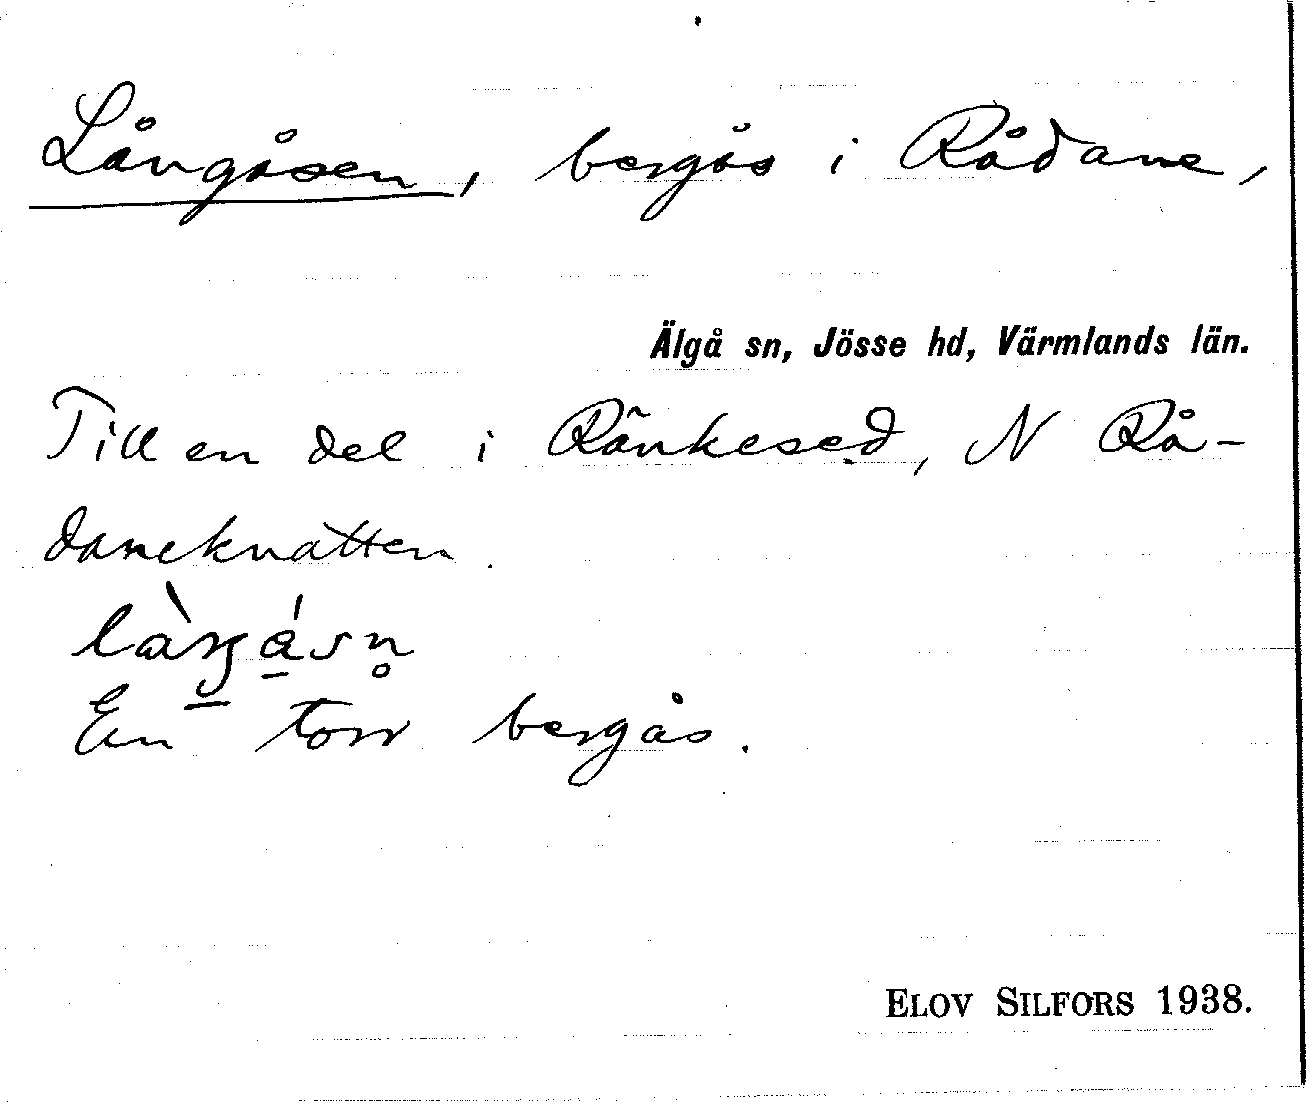 Långåsen, bergås i Rådane,
Älgå sn, Jösse hd, Värmlands län.
Till en del i Ränkesed, N Rå-
daneknatten.
En torr bergås.
ELOV SILFORS 1938.